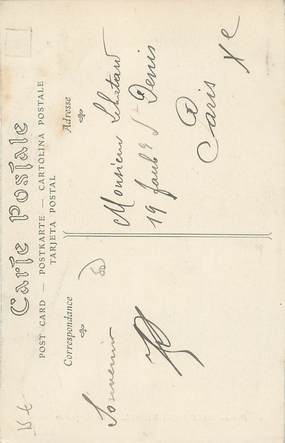 Carte Postale
POST CARD — POSTKARTE — CARTOLINA POSTALE
TARJETA POSTAL
Correspondance
Adresse
Souvenir
Monsieur
19 Faub g St Denis
Paris Xe